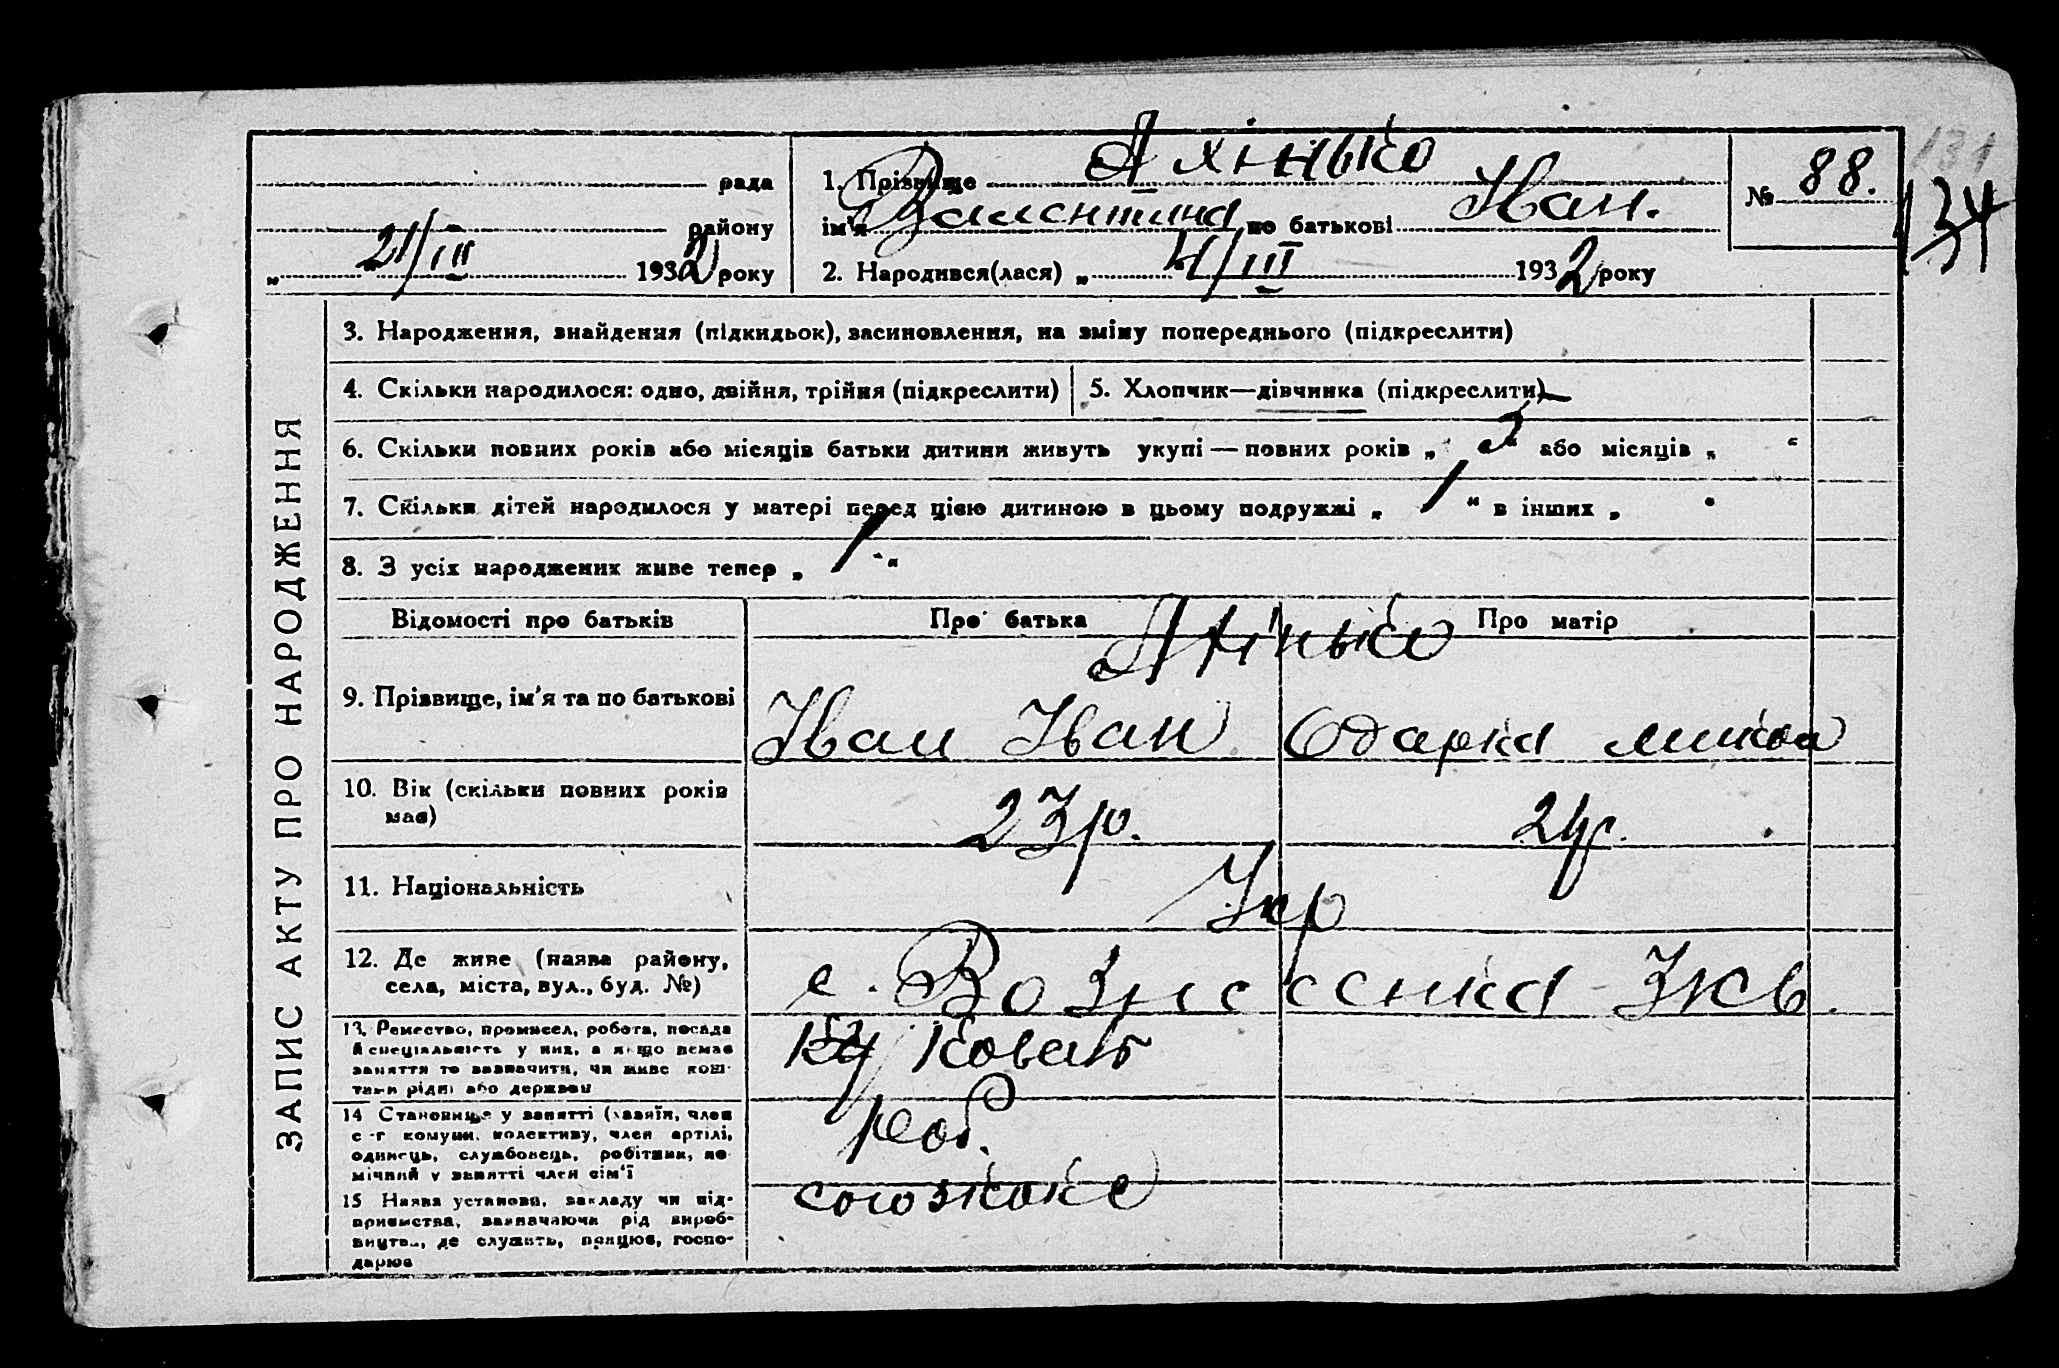 Яхінько
рада 1. Прізвище № 88. 131
134
району ім'я Валентина по батькові Іван.
„ 21/III 1932 року 2. Народився(лася) „ 4/III 1932 року
ЗАПИС АКТУ ПРО НАРОДЖЕННЯ
3. Народження, знайдення (підкидьок), засиновлення, на зміну попереднього (підкреслити)
4. Скільки народилося: одно, двійня, трійня (підкреслити) 5. Хлопчик—дівчинка (підкреслити)
6. Скільки повних років або місяців батьки дитини живуть укупі — повних років „ 3 “ або місяців „ “
7. Скільки дітей народилося у матері перед цією дитиною в цьому подружжі „ 1 “ в інших „ “
8. З усіх народжених живе тепер „ 1 “
Відомості про батьків Про батька Про матір
Яхінько
9. Прізвище, ім'я та по батькові Іван Іван Одарка
10. Вік (скільки повних років 23 р. 24 р.
має)
11. Національність Укр
12. Де живе (назва району, с. Вознесенка
села, міста, вул., буд. №)
13. Ремество, промисел, робота, посада Коваль
й спеціяльність у них, а якщо немає
заняття то зазначити, чи живе кош-
тами рідні або держави
14 Становище у занятті (хазяїн, член роб.
с-г комуни, колективу, член артілі,
одинець, службовець, робітник, по-
мічний у занятті член сім'ї
15 Назва установи, закладу чи під- союзкокс
приємства, зазначаючи рід вироб-
ництва, де служить, працює, госпо-
дарює